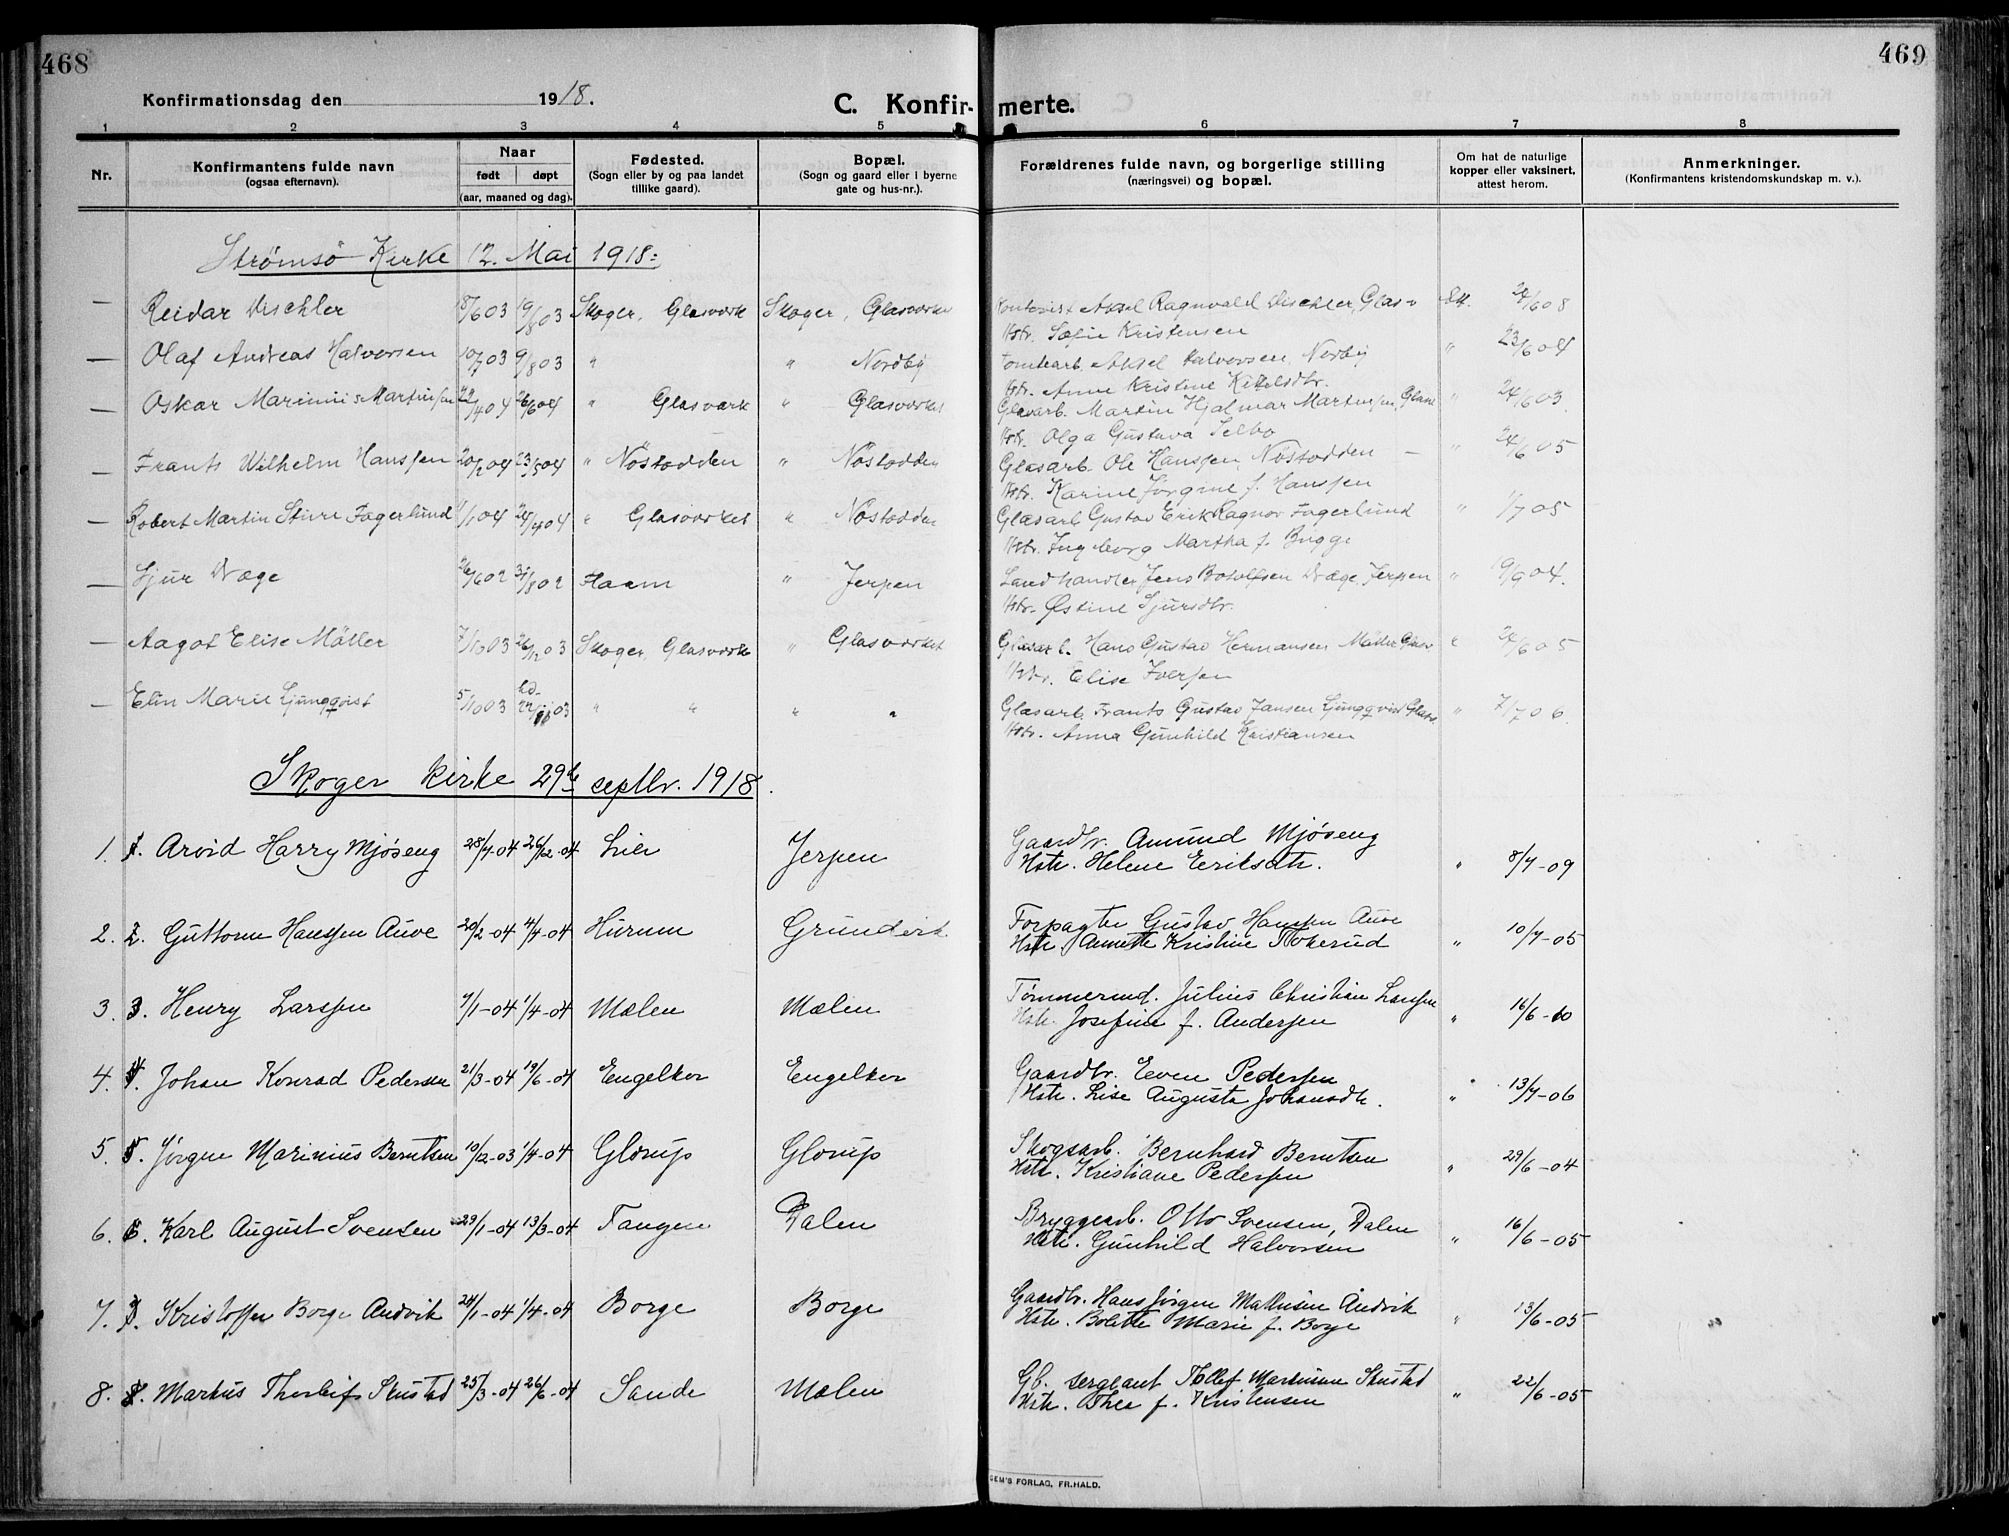 468
469
Konfirmationsdag den 1918.
C. Konfirmerte.
1 2 3 4 5 6 7 8
Nr.
Konfirmantens fulde navn
(ogsaa efternavn).
Naar
født døpt
(aar, maaned og dag).
Fødested.
(Sogn eller by og paa landet
tillike gaard).
Bopæl.
(Sogn og gaard eller i byerne
gate og hus-nr.).
Forældrenes fulde navn, og borgerlige stilling
(næringsvei) og bopæl.
Om hat de naturlige
kopper eller vaksinert,
attest herom.
Anmerkninger.
(Konfirmantens kristendomskundskap m. v.).
Strømsö Kirke 12. Mai 1918:
— Reidar Dischler 18/6 03 19/8 03 Skoger, Glasværk Skoger, Glasværket Kontorist Aksel Ragnvald Dischler, Glasv Att. 24/6 08
Hstr. Sofie Kristensen
— Olaf Andreas Halvorsen 10/7 03 9/8 03 " " Nordby Tomtearb. Aksel Halvorsen, Nordby " 23/6 04
Hstr. Anne Kristine Ketilsdtr.
— Oskar Marinius Martinssen 29/4 04 26/6 04 " Glasværk " Glasværket Glasarb. Martin Hjalmar Martinssen, Glasv " 24/6 03.
Hstr. Olga Gustava Selbo
— Frants Wilhelm Hanssen 20/2 04 23/5 04 " Nöstodden " Nöstodden Glasarb. Ole Hanssen, Nöstodden — " 24/6 05
Hstr. Karine Jörgine f. Hanssen
— Robert Martin Sture Fagerlund 1/1 04 24/4 04 " Glasværket " Nöstodden Glasarb Gustav Erik Ragnar Fagerlund " 1/7 05
Hstr. Ingeborg Martha f. Bugge
— Sjur Dræge 26/6 02 31/8 02 Flaam " Jerpen Landhandler Jens Botolfsen Dræge, Jerpen " 9/9 04.
Hstr. Østine Sjursdtr.
— Aagot Elise Möller 7/10 03 26/12 03 Skoger, Glasværk " Glasværket Glasarb. Hans Gustav Hermansen Möller Glasv " 24/6 05
Hstr. Elise Iversen
— Elin Marie Ljungqvist 5/10 03 hd. 22/11 03 " " " " Glasarb. Frants Gustav Jansen Ljungqvist Glasv. " 7/7 06.
Hstr. Anna Gunhild Kristiansen
Skoger kirke 29de septbr. 1918.
1. 1. Arvid Harry Mjøseng 28/7-04 26/12-04 Lier Jerpen Gaardbr. Amund Mjøseng
Hstr. Helene Eriksdtr. " 8/7-09
2. 2. Guttorm Hanssen Auve 20/2-04 4/4-04 Hurum Grunderk Forpagter Gustav Hanssen Auve
Hstr. Annette Kristine Stokerud " 10/7-05
3. 3. Henry Larssen 7/1-04 1/4-04 Mælen Mælen Tømmermd. Julius Christian Larssen
Hstr. Josefine f. Andersen " 16/6-10
4. 4. Johan Konrad Pedersen 21/3-04 19/6-04 Engelkor Engelkor Gaardbr. Even Pedersen
Hstr. Lise Augusta Johansdtr. " 13/7-06
5. 5. Jørgen Marinius Berntsen 19/12-03 1/4-04 Glorup Glorup Skogsarb. Bernhard Berntsen
Hstr. Kristiane Pedersen " 29/6-04
6. 6. Karl August Svensen 23/1-04 13/3-04 Tangen Dalen Bryggearb. Otto Svensen, Dalen
Hstr. Gunhild Halvorsen " 16/6-05
7. 7. Kristoffer Borge Andvik 24/1-04 1/4-04 Borge Borge Gaardbr. Hans Jörgen Mathisen Andvik
Hstr. Bolette Marie f. Borge " 13/6-05
8. 8. Markus Thorleif Skustad 25/3-04 26/6-04 Sande Mælen Gb. sergeant Tollef Martinsen Skustad
Hstr. Thea f. Kristensen " 22/6-05
GEM'S FORLAG, FR. HALD.